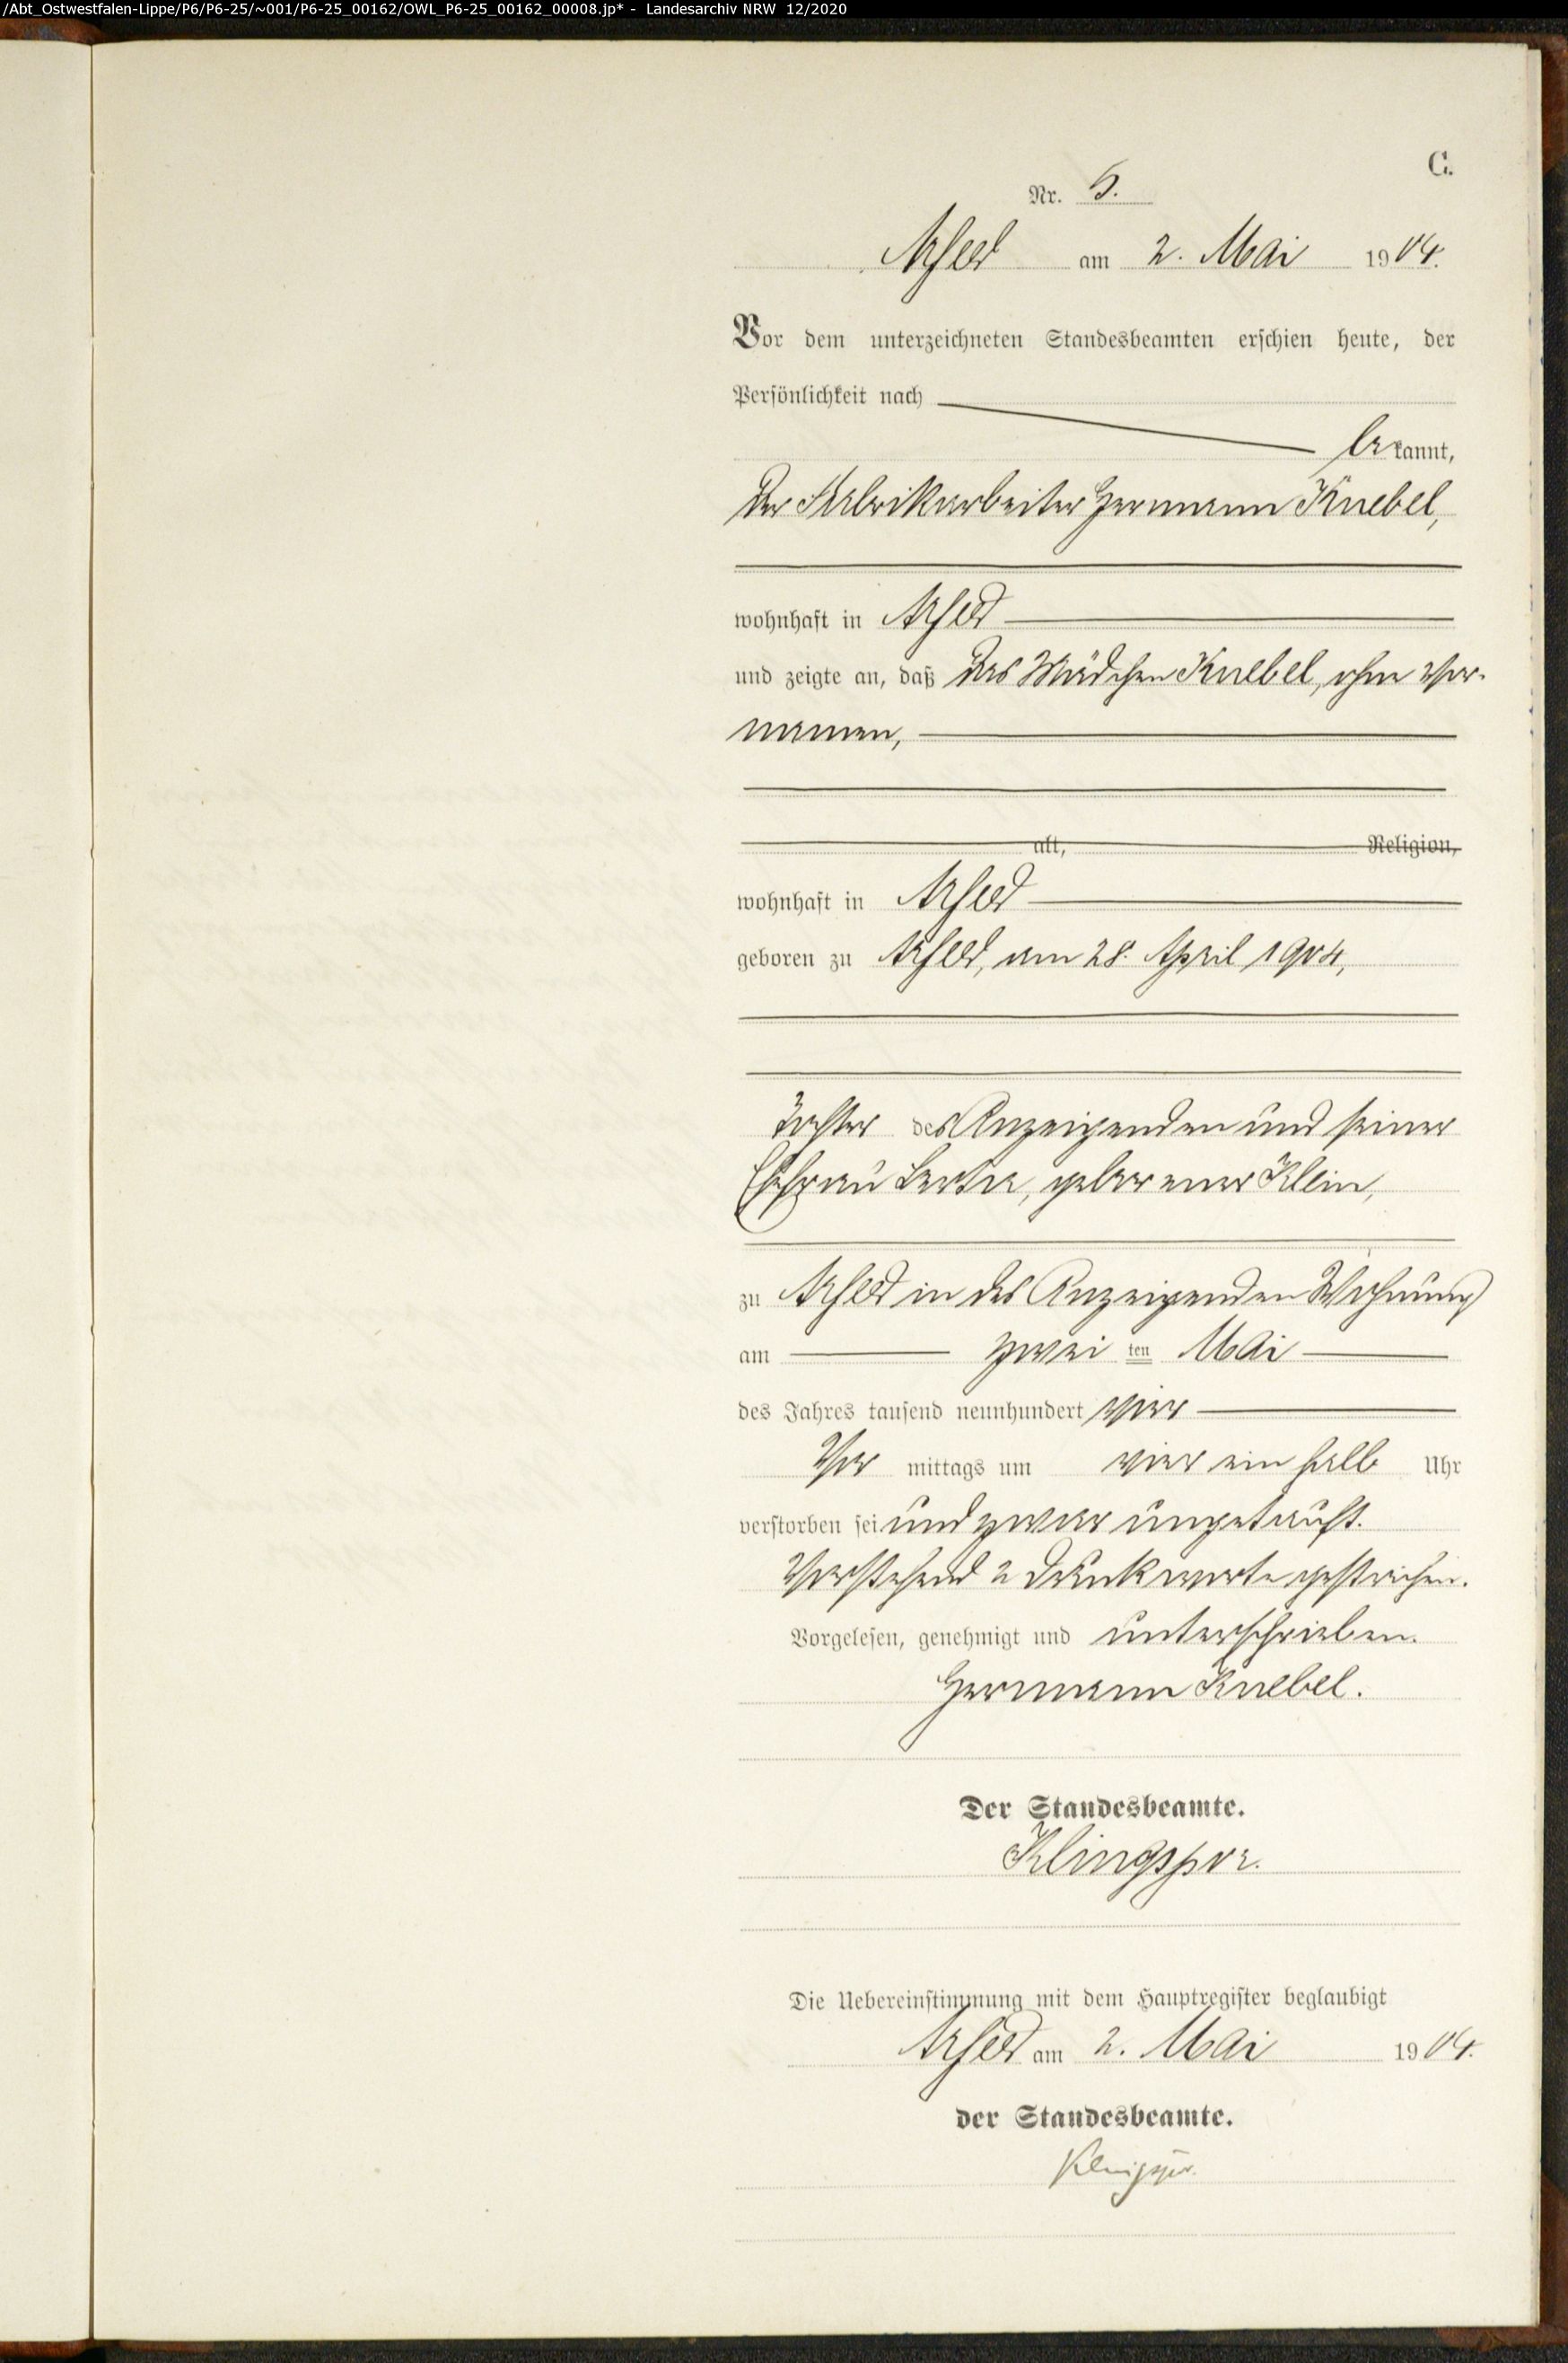 /Abt_Ostwestfalen-Lippe/P6/P6-25/~001/P6-25_00162/OWL_P6-25_00162_00008.jp* - Landesarchiv NRW 12/2020
C.
Nr. 5.
Arfeld am 2. Mai 1904.
Vor dem unterzeichneten Standesbeamten erschien heute, der
Persönlichkeit nach
bekannt,
der Fabrikarbeiter Hermann Knebel,
wohnhaft in Arfeld
und zeigte an, daß das Mädchen Knebel, ohne Vor-
namen,
alt, Religion,
wohnhaft in Arfeld
geboren zu Arfeld, am 28. April 1904,
Tochter des Anzeigenden und seiner
Ehefrau Berta, geborener Klein,
zu Arfeld in des Anzeigenden Wohnung
am zwei ten Mai
des Jahres tausend neunhundert vier
Vor mittags um vier ein halb Uhr
verstorben sei und zwar ungetauft.
Vorstehend 2 Druckworte gestrichen.
Vorgelesen, genehmigt und unterschrieben.
Hermann Knebel.
Der Standesbeamte.
Klingspor.
Die Uebereinstimmung mit dem Hauptregister beglaubigt
Arfeld am 2. Mai 1904.
der Standesbeamte.
Klingspor.